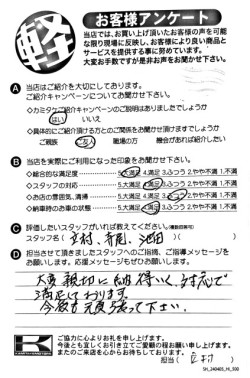 軽
お客様アンケート
当店では、お買い上げ頂いたお客様の声を可能
な限り現場に反映し、お客様により良い商品と
サービスを提供する事に努めています。
大変お手数ですが是非お声をお聞かせ下さい。
A 当店はご紹介を大切にしております。
ご紹介キャンペーンについてお聞かせ下さい。
◇カミタケご紹介キャンペーンのご説明はありましたでしょうか
はい いいえ
◇具体的にご紹介頂ける方とのご関係をお聞かせ頂けますでしょうか
ご親族 ご友人 職場の方 機会があれば紹介したい
B 当店を実際にご利用になった印象をお聞かせ下さい。
◇総合的な満足度 5.大満足 4.満足 3.ふつう 2.やや不満 1.不満
◇スタッフの対応 5.大満足 4.満足 3.ふつう 2.やや不満 1.不満
◇お店の雰囲気、清掃 5.大満足 4.満足 3.ふつう 2.やや不満 1.不満
◇納車時のお車の状態 5.大満足 4.満足 3.ふつう 2.やや不満 1.不満
C 評価したいスタッフがいれば教えてください。(複数回答可)
スタッフ名( 立村、 池田 )(
D 担当させて頂きましたスタッフへのご指摘、ご指導メッセージを
お願いします。応援メッセージもぜひお願いします。
大変親切に納得いく対応で
満足しております。
今後も元気で頑張って下さい。
K
ご協力に心よりお礼を申し上げます。
今後とも宜しくお引き立てご愛顧の程お願い申し上げます。
またのご来店を心からお待ちしております。
担当( )
SH_240403_HI_593